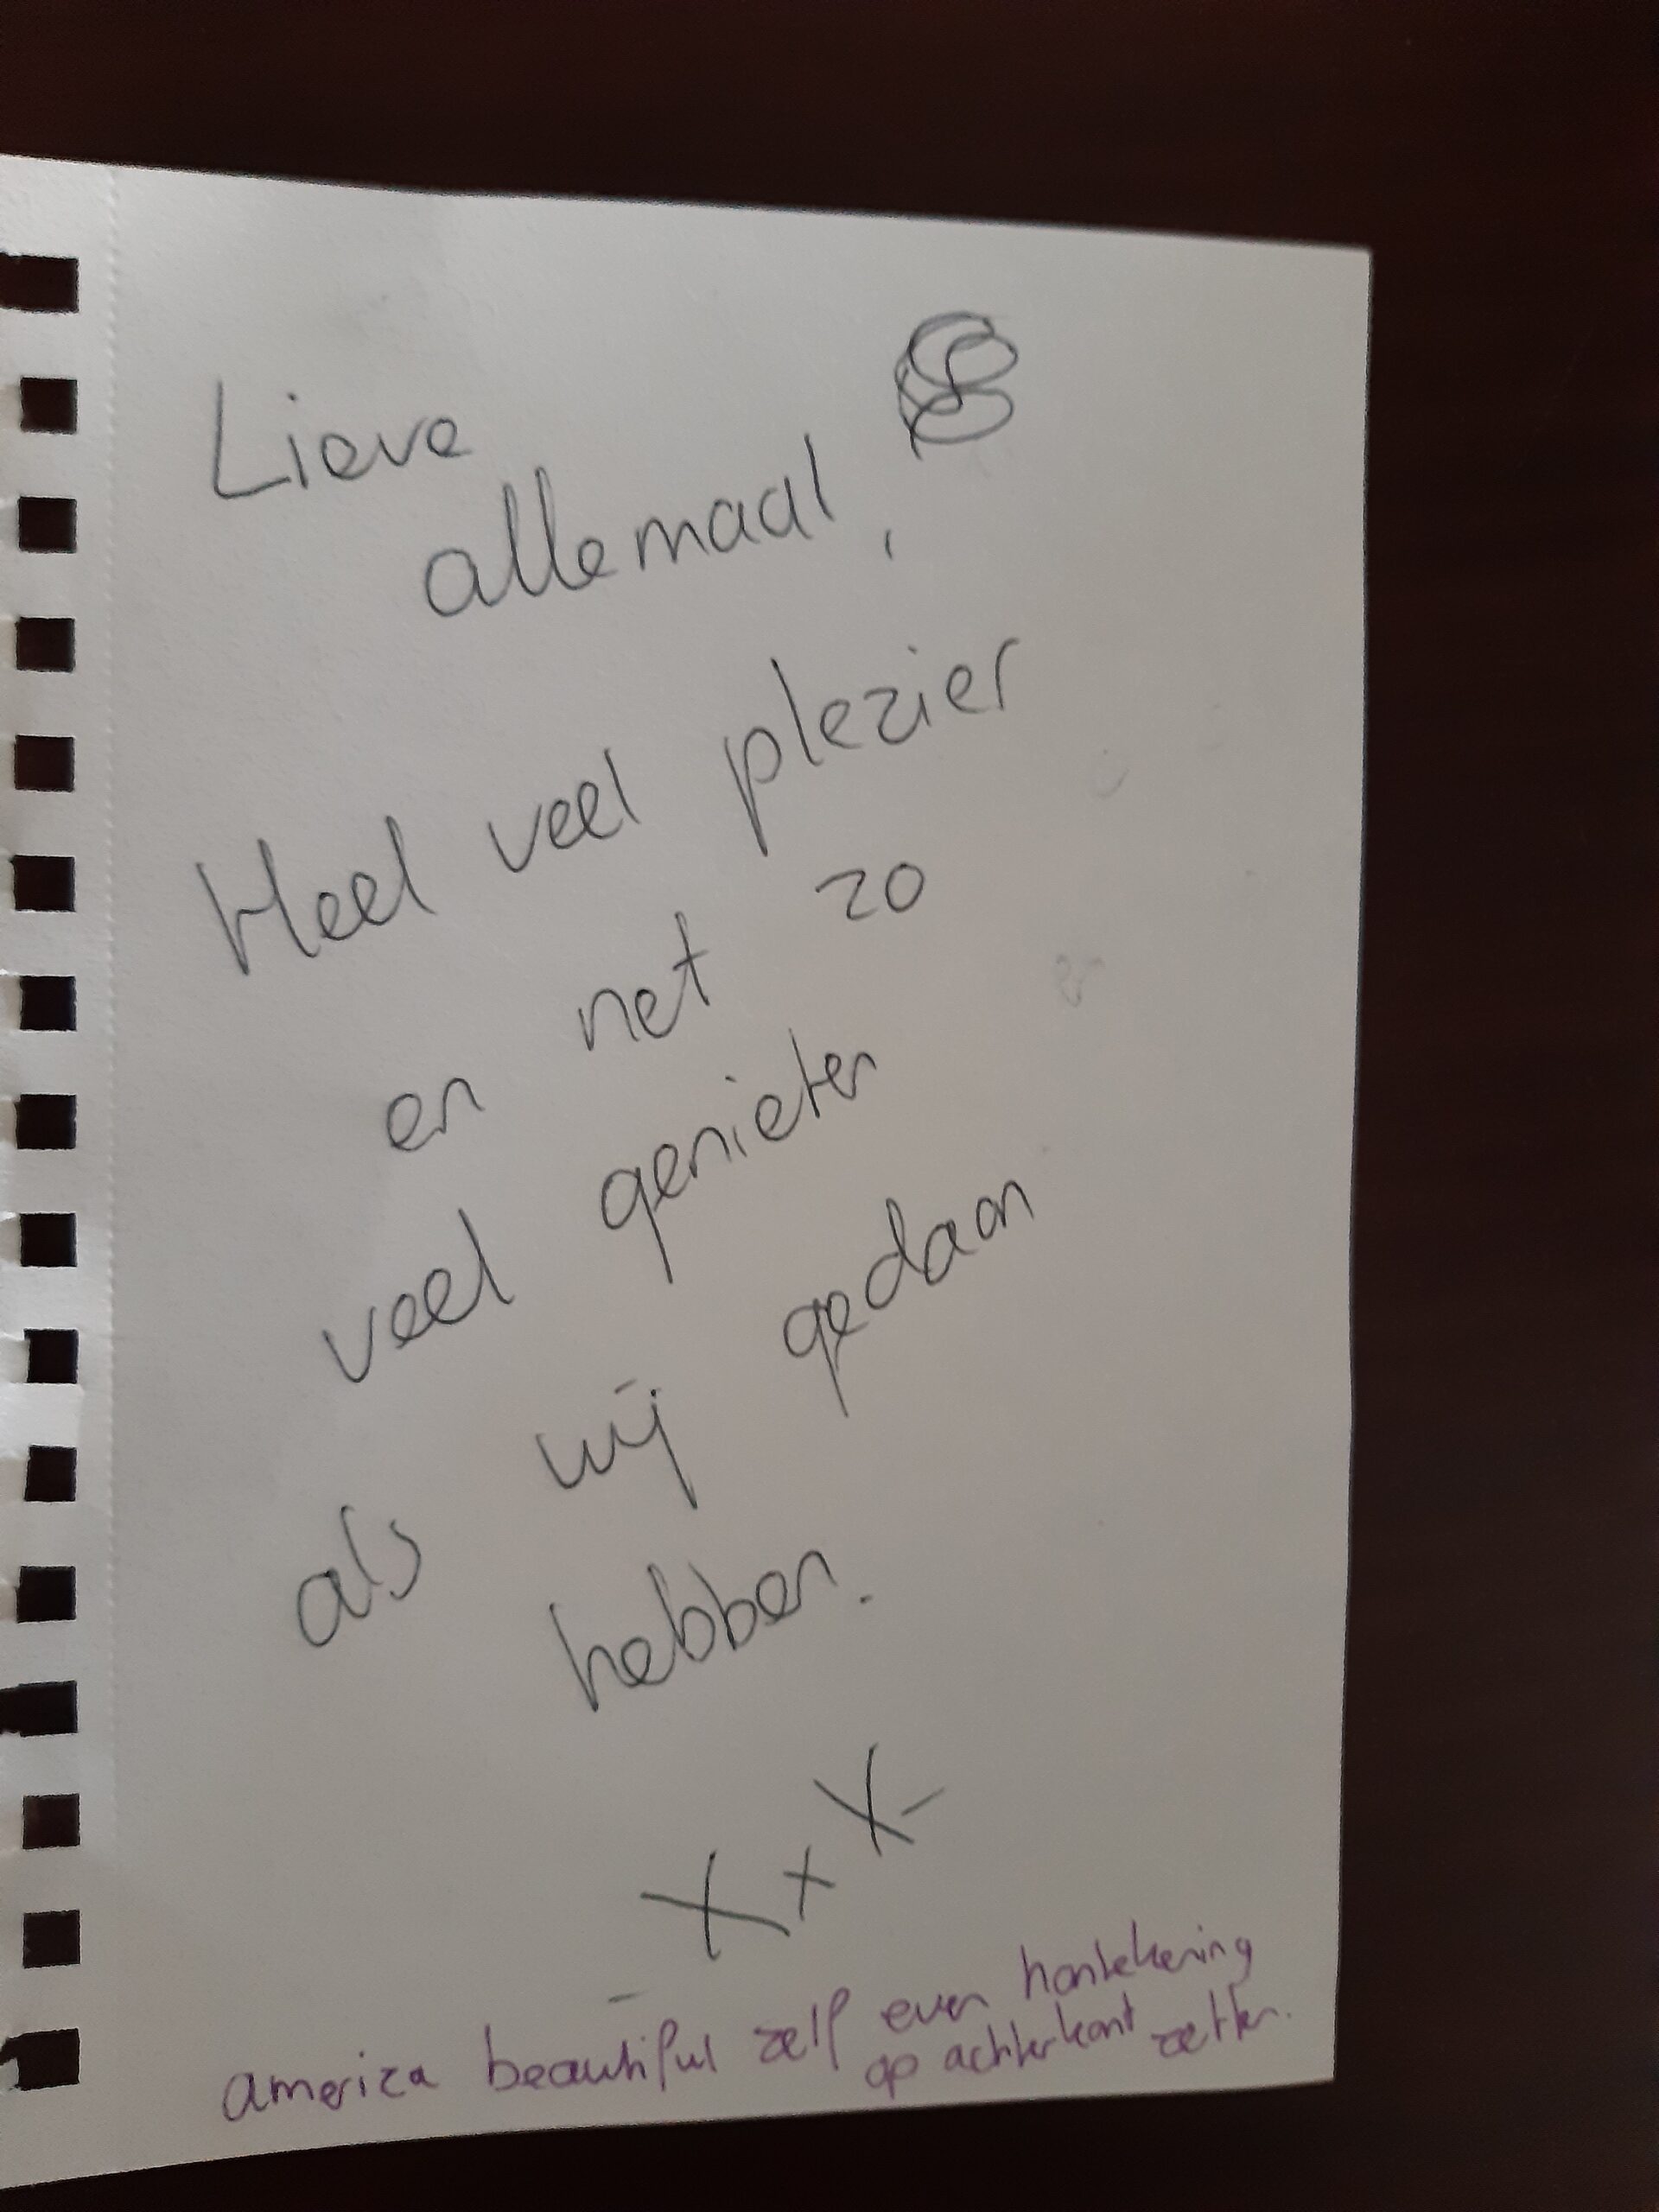 Lieve
allemaal,
Heel veel plezier
en net zo
veel genieten
als wij gedaan
hebben.
XxX
america beautiful zelf even hantekening
op achterkant zetten.